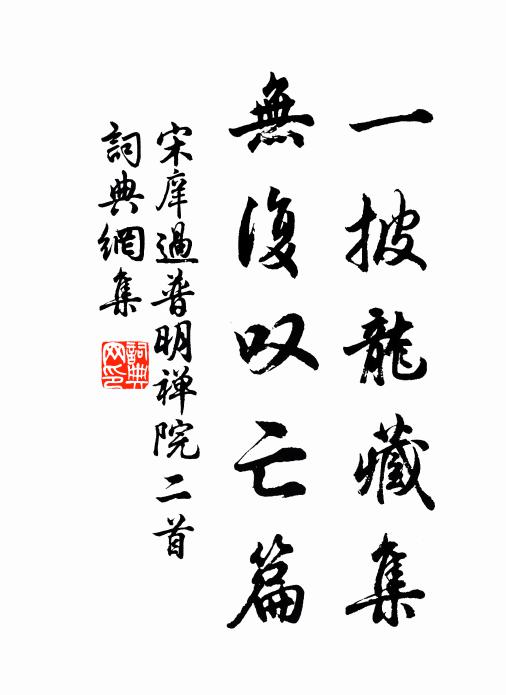 一披龍藏集
無復叹亡篇
宋庠過普明禅院二首
詞典網集
詞典网印